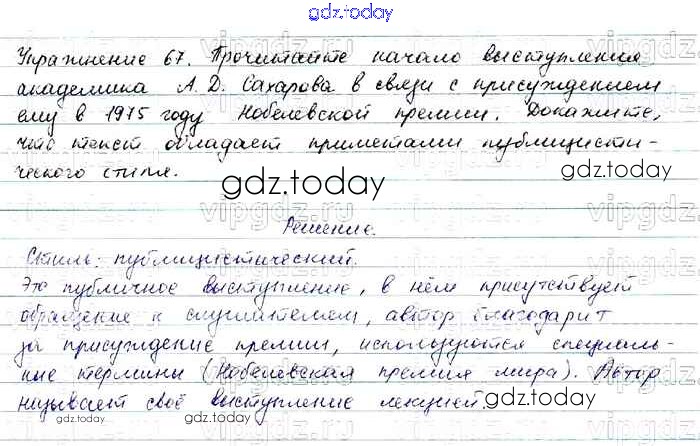 gdz.today
Упражнение 67. Прочитайте начало выступления
академика А. Д. Сахарова в связи с присуждением
ему в 1975 году Нобелевской премии. Докажите,
что текст обладает приметами публицисти-
ческого стиля.
gdz.today
gdz.today
vipgdz.ru
Решение.
Стиль: публицистический.
Это публичное выступление, в нём присутствует
обращение к слушателем, автор благодарит
за присуждение премии, используются специаль-
ные термины (Нобелевская премия мира). Автор
называет своё выступление лекцией.
gdz.today
gdz.today